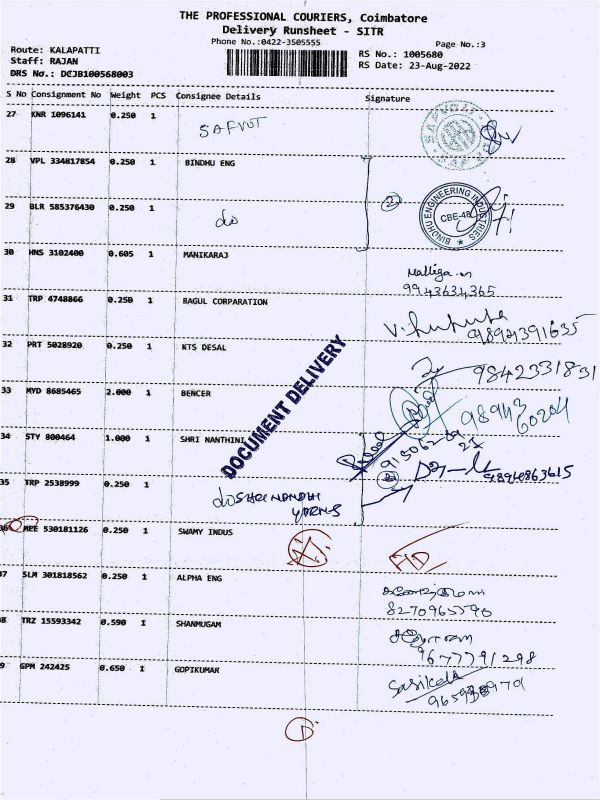 THE PROFESSIONAL COURIERS, Coimbatore
Delivery Runsheet - SITR
Phone No.:0422-3505555
Page No.:3
Route: KALAPATTI
Staff: RAJAN
DRS No.: DCJB100568003
RS No.: 1005680
RS Date: 23-Aug-2022
S No Consignment No Weight PCS Consignee Details Signature
27 KNR 1096141 0.250 1 SAFVOT
28 VPL 334817854 0.250 1 BINDHU ENG
29 BLR 585376430 0.250 1 do
2
BINDHU ENGINEERING INDUSTRIES
CBE-48
30 HNS 3102400 0.605 1 MANIKARAJ
Malliga.m
9943634365
31 TRP 4748866 0.250 1 RAGUL CORPARATION
9894391635
32 PRT 5028920 0.250 1 KTS DESAL
9842331831
33 MYD 8685465 2.000 1 BENCER
9894360204
DOCUMENT DELIVERY
34 STY 800464 1.000 1 SHRI NANTHINI
9894863615
35 TRP 2538999 0.250 1 do SHRI NANDHI
YARNS
36 MEE 530181126 0.250 1 SWAMY INDUS
37 SLM 301818562 0.250 1 ALPHA ENG
8270965590
38 TRZ 15593342 0.590 1 SHANMUGAM
9677791298
39 GPM 242425 0.650 1 GOPIKUMAR
Sasikala